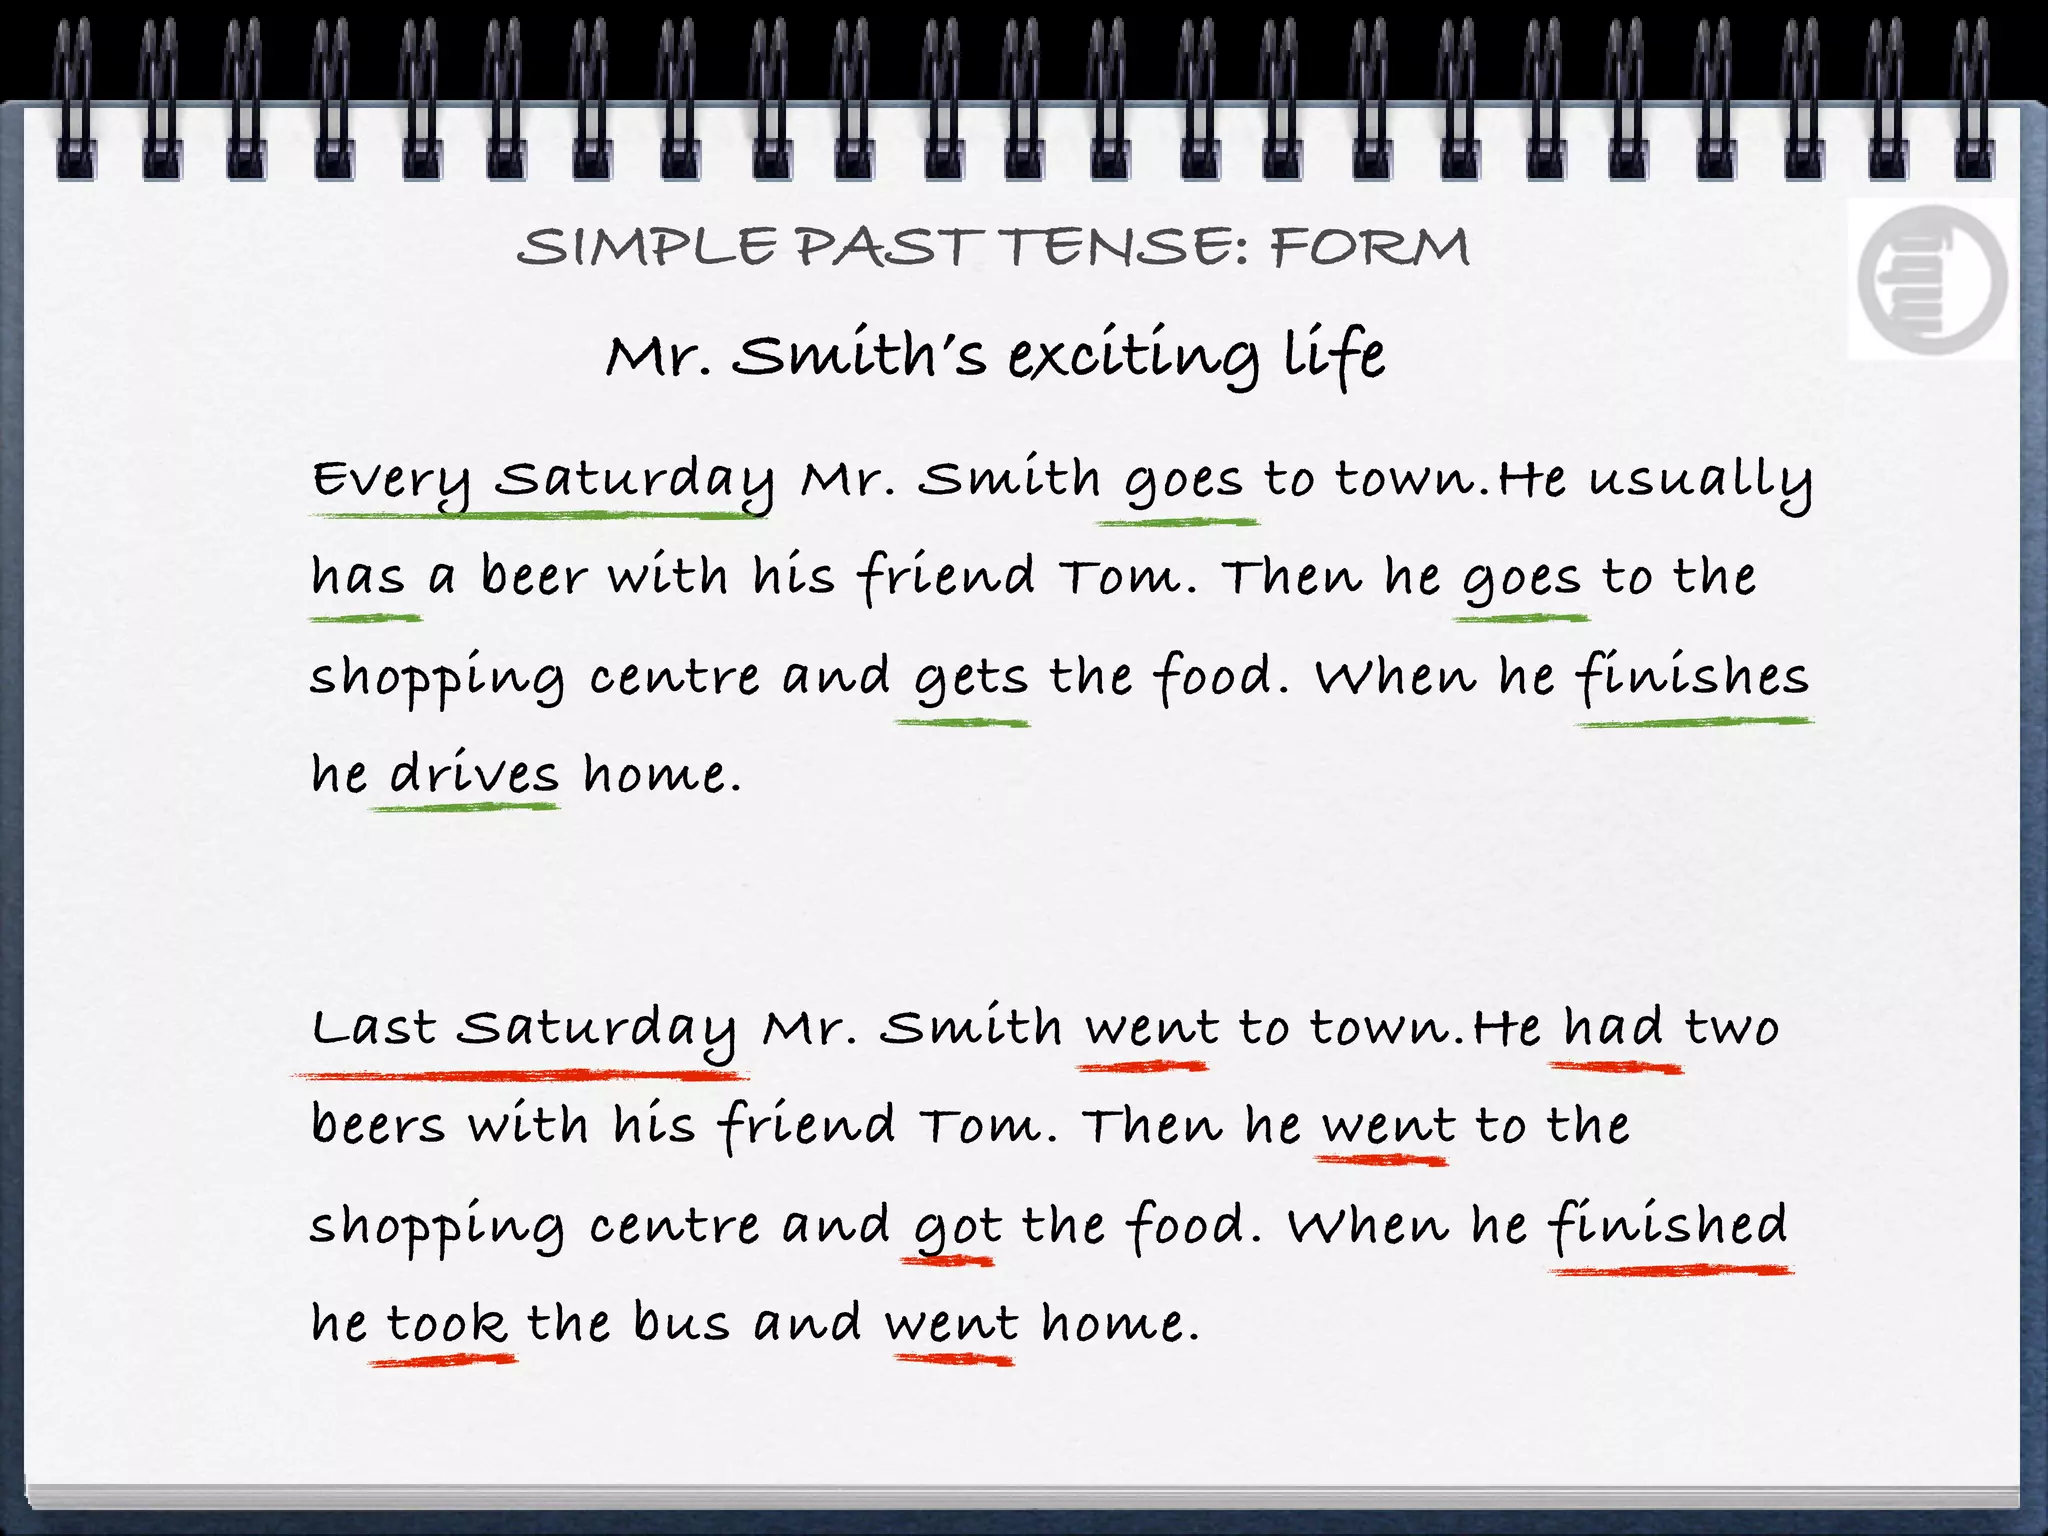 SIMPLE PAST TENSE: FORM
mbg
Mr. Smith's exciting life
Every Saturday Mr. Smith goes to town.He usually
has a beer with his friend Tom. Then he goes to the
shopping centre and gets the food. When he finishes
he drives home.
Last Saturday Mr. Smith went to town.He had two
beers with his friend Tom. Then he went to the
shopping centre and got the food. When he finished
he took the bus and went home.